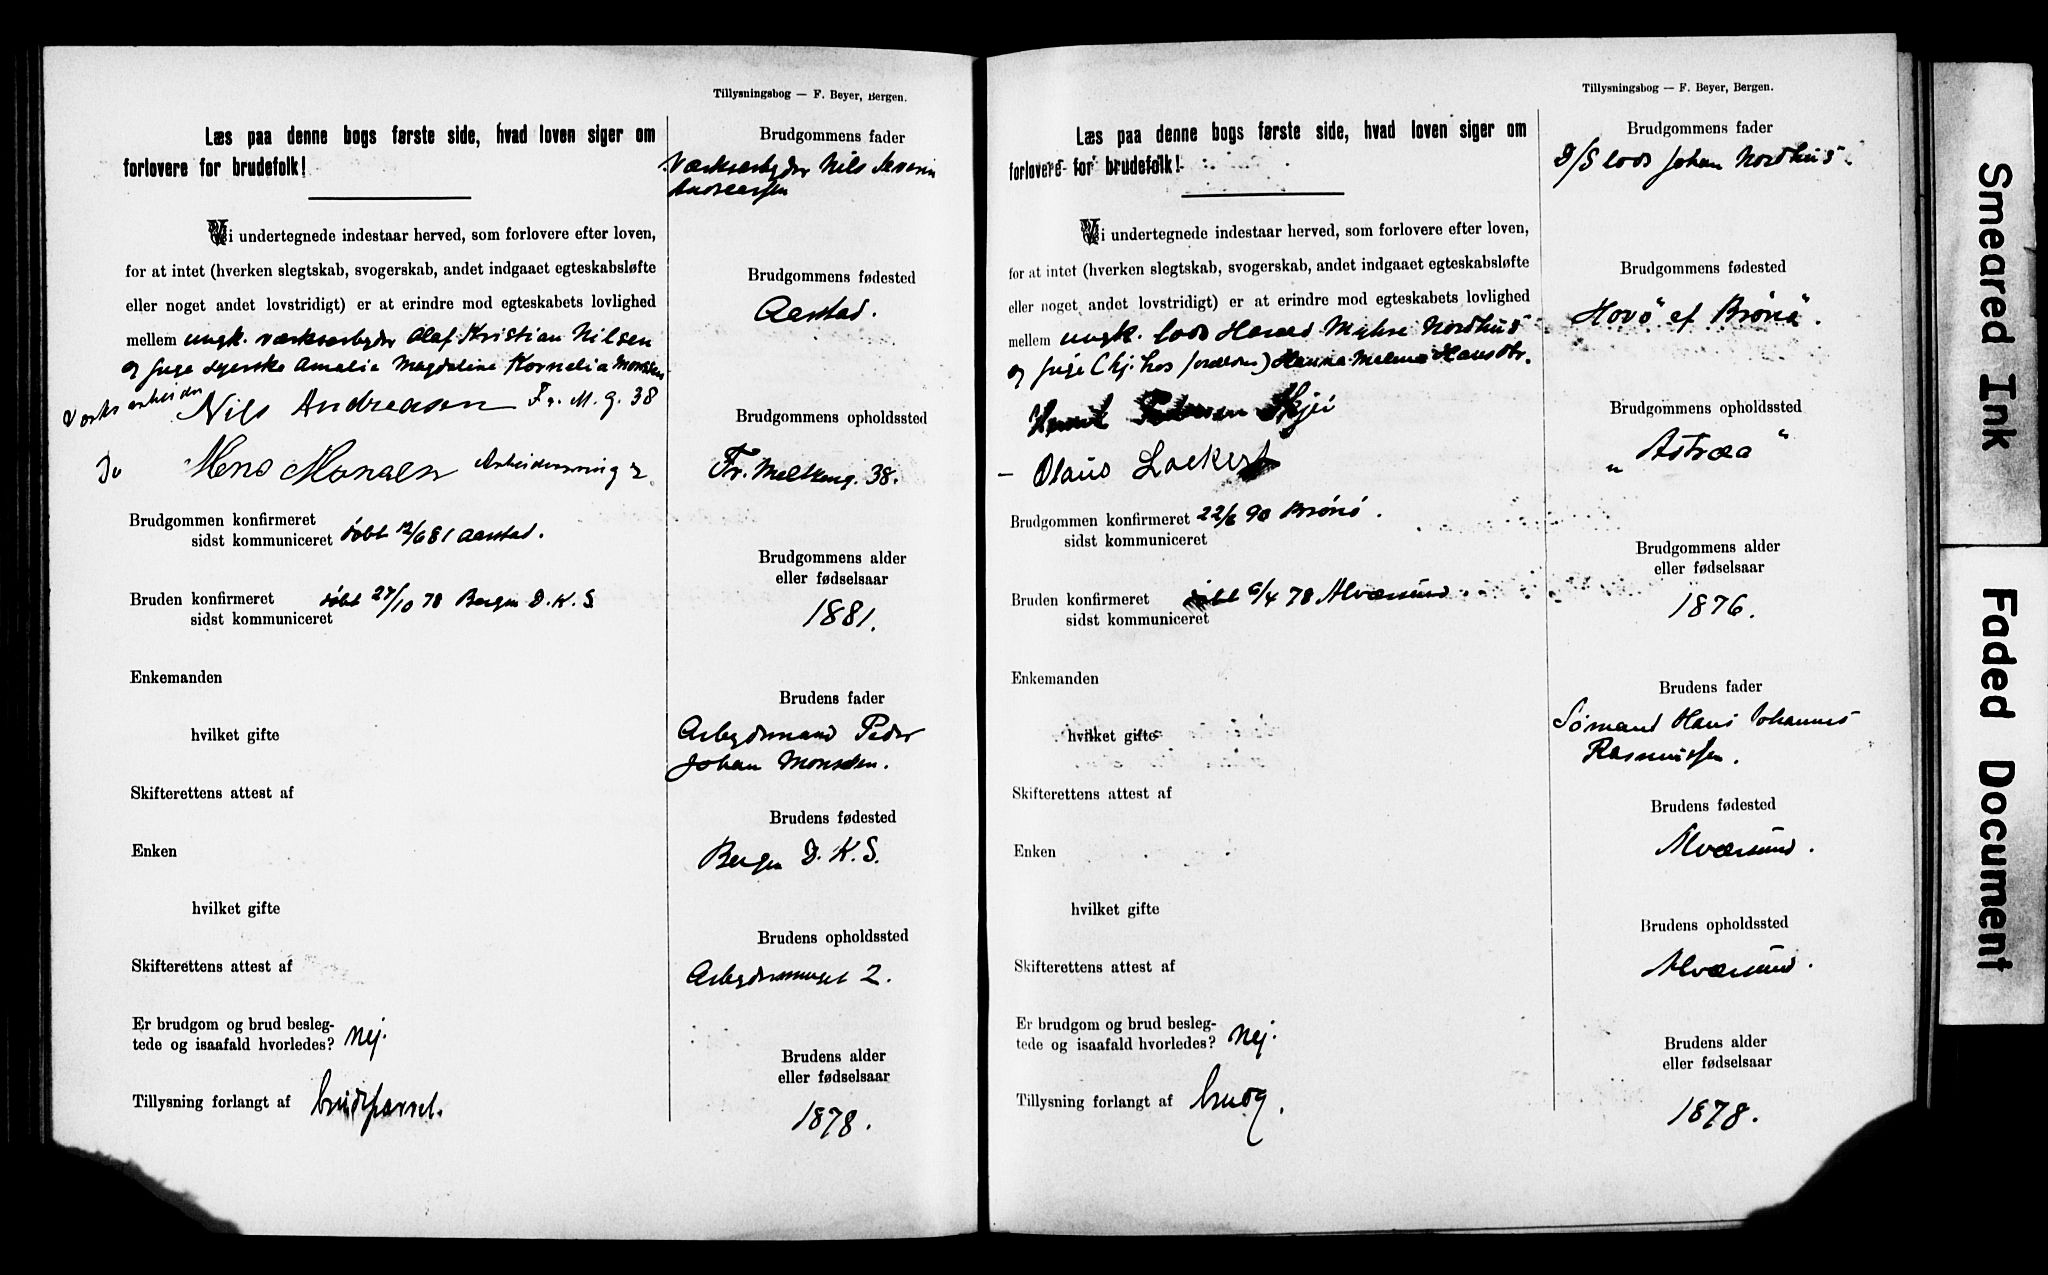 Tillysningsbog — F. Beyer, Bergen.
Læs paa denne bogs første side, hvad loven siger om
forlovere for brudefolk!
Vi undertegnede indestaar herved, som forlovere efter loven,
for at intet (hverken slegtskab, svogerskab, andet indgaaet egteskabsløfte
eller noget andet lovstridigt) er at erindre mod egteskabets lovlighed
mellem ungk. værksarbyder Olaf Kristian Nilsen
og pige syerske Amalie Magdaline Kornelia Monssen
Værksarbeider Nils Andreasen Fr. M. g. 38
Do Mons Monsen 2
Brudgommen konfirmeret
sidst kommuniceret døbt 12/6 81 Aarstad.
Bruden konfirmeret døbt 27/10 78 Bergen D. K. S
sidst kommuniceret
Enkemanden
hvilket gifte
Skifterettens attest af
Enken
hvilket gifte
Skifterettens attest af
Er brudgom og brud besleg-
tede og isaafald hvorledes? Nej.
Tillysning forlangt af brudeparret.
Brudgommens fader
Værksarbyder Nils Severin
Andreassen
Brudgommens fødested
Aarstad.
Brudgommens opholdssted
Fr. Meltzersg. 38.
Brudgommens alder
eller fødselsaar
1881.
Brudens fader
Arbejdsmand Peder
Johan Monssen.
Brudens fødested
Bergen D. K. S.
Brudens opholdssted
2.
Brudens alder
eller fødselsaar
1878.
Tillysningsbog — F. Beyer, Bergen.
Læs paa denne bogs første side, hvad loven siger om
forlovere for brudefolk!
Vi undertegnede indestaar herved, som forlovere efter loven,
for at intet (hverken slegtskab, svogerskab, andet indgaaet egteskabsløfte
eller noget andet lovstridigt) er at erindre mod egteskabets lovlighed
mellem ungk. lods Harald Nordhus
og pige (hj. hos forældrene) Hanna Melena Hansdtr.
Henrik Pedersen Skjei
— Olaus Lockert
Brudgommen konfirmeret 22/6 90 Brønø.
sidst kommuniceret
Bruden konfirmeret døbt 6/4 78 Alværsund.
sidst kommuniceret
Enkemanden
hvilket gifte
Skifterettens attest af
Enken
hvilket gifte
Skifterettens attest af
Er brudgom og brud besleg-
tede og isaafald hvorledes? Nej.
Tillysning forlangt af brudg.
Brudgommens fader
D/S lods Johan Nordhus.
Brudgommens fødested
Hovø af Brønø.
Brudgommens opholdssted
„ Astræa "
Brudgommens alder
eller fødselsaar
1876.
Brudens fader
Sømand Hans Johannes
Rasmussen.
Brudens fødested
Alværsund.
Brudens opholdssted
Alværsund.
Brudens alder
eller fødselsaar
1878.
Smeared Ink
Faded Document